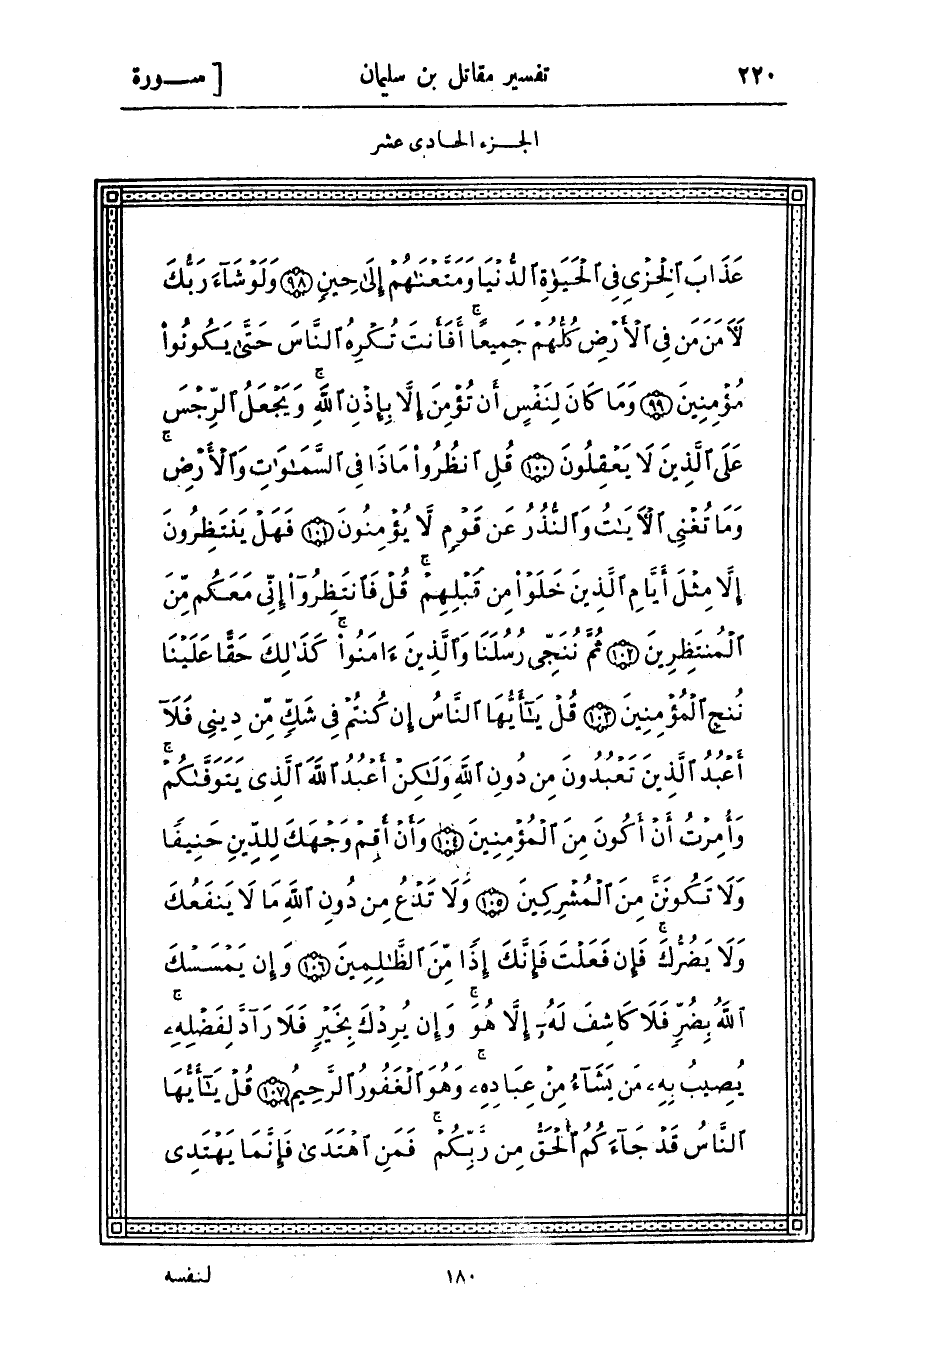 ٢٢٠ تفسير مقاتل بن سليمان [ ســورة
الجــزء الحـادى عشر
عَذَابَ ٱلْخِزْيِ فِى ٱلْحَيَوٰةِ ٱلدُّنْيَا وَمَتَّعْنَٰهُمْ إِلَىٰ حِينٍ ﴿٩٨﴾ وَلَوْ شَآءَ رَبُّكَ
لَأٓمَنَ مَن فِى ٱلْأَرْضِ كُلُّهُمْ جَمِيعًا ۚ أَفَأَنتَ تُكْرِهُ ٱلنَّاسَ حَتَّىٰ يَكُونُوا۟
مُؤْمِنِينَ ﴿٩٩﴾ وَمَا كَانَ لِنَفْسٍ أَن تُؤْمِنَ إِلَّا بِإِذْنِ ٱللَّهِ ۚ وَيَجْعَلُ ٱلرِّجْسَ
عَلَى ٱلَّذِينَ لَا يَعْقِلُونَ ﴿١٠٠﴾ قُلِ ٱنظُرُوا۟ مَاذَا فِى ٱلسَّمَٰوَٰتِ وَٱلْأَرْضِ ۚ
وَمَا تُغْنِى ٱلْأٓيَٰتُ وَٱلنُّذُرُ عَن قَوْمٍ لَّا يُؤْمِنُونَ ﴿١٠١﴾ فَهَلْ يَنتَظِرُونَ
إِلَّا مِثْلَ أَيَّامِ ٱلَّذِينَ خَلَوْا۟ مِن قَبْلِهِمْ ۚ قُلْ فَٱنتَظِرُوٓا۟ إِنِّى مَعَكُم مِّنَ
ٱلْمُنتَظِرِينَ ﴿١٠٢﴾ ثُمَّ نُنَجِّى رُسُلَنَا وَٱلَّذِينَ ءَامَنُوا۟ ۚ كَذَٰلِكَ حَقًّا عَلَيْنَا
نُنجِ ٱلْمُؤْمِنِينَ ﴿١٠٣﴾ قُلْ يَٰٓأَيُّهَا ٱلنَّاسُ إِن كُنتُمْ فِى شَكٍّ مِّن دِينِى فَلَآ
أَعْبُدُ ٱلَّذِينَ تَعْبُدُونَ مِن دُونِ ٱللَّهِ وَلَٰكِنْ أَعْبُدُ ٱللَّهَ ٱلَّذِى يَتَوَفَّىٰكُمْ ۚ
وَأُمِرْتُ أَنْ أَكُونَ مِنَ ٱلْمُؤْمِنِينَ ﴿١٠٤﴾ وَأَنْ أَقِمْ وَجْهَكَ لِلدِّينِ حَنِيفًا
وَلَا تَكُونَنَّ مِنَ ٱلْمُشْرِكِينَ ﴿١٠٥﴾ وَلَا تَدْعُ مِن دُونِ ٱللَّهِ مَا لَا يَنفَعُكَ
وَلَا يَضُرُّكَ ۚ فَإِن فَعَلْتَ فَإِنَّكَ إِذًا مِّنَ ٱلظَّٰلِمِينَ ﴿١٠٦﴾ وَإِن يَمْسَسْكَ
ٱللَّهُ بِضُرٍّ فَلَا كَاشِفَ لَهُۥٓ إِلَّا هُوَ ۚ وَإِن يُرِدْكَ بِخَيْرٍ فَلَا رَآدَّ لِفَضْلِهِۦ ۚ
يُصِيبُ بِهِۦ مَن يَشَآءُ مِنْ عِبَادِهِۦ ۚ وَهُوَ ٱلْغَفُورُ ٱلرَّحِيمُ ﴿١٠٧﴾ قُلْ يَٰٓأَيُّهَا
ٱلنَّاسُ قَدْ جَآءَكُمُ ٱلْحَقُّ مِن رَّبِّكُمْ ۚ فَمَنِ ٱهْتَدَىٰ فَإِنَّمَا يَهْتَدِى
١٨٠ لنفسه